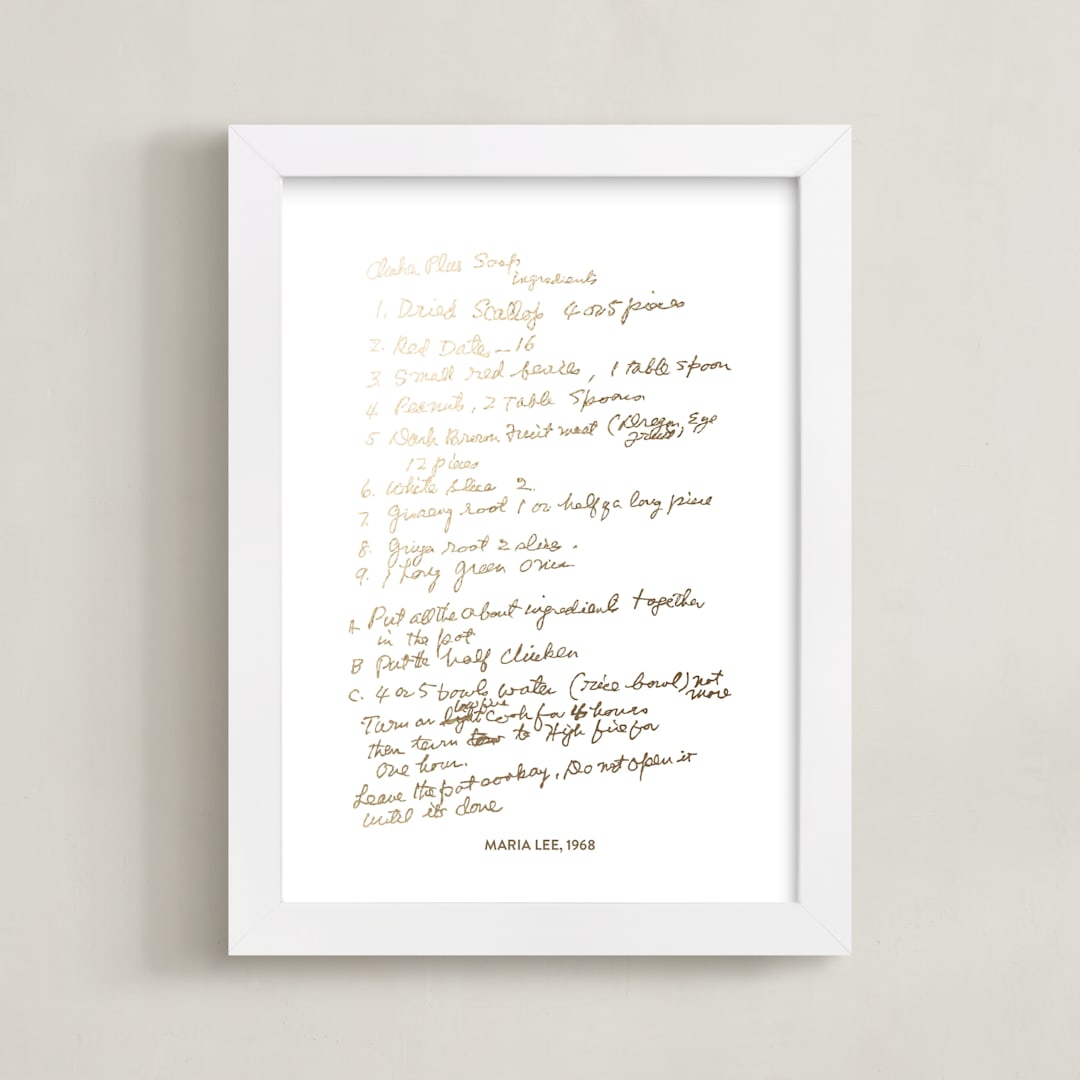 Plus Soup
ingredients
1. Dried Scallop 4 or 5 pieces
2. Red Dates — 16
3. Small red berries, 1 table spoon
4. Peanuts, 2 Table Spoons
5 Dark Brown Fruit meat (Dragon Eye
Fruit)
12 pieces
6. White slice 2.
7. Ginseng root 1 or half of a long piece
8. Ginger root 2 slices.
9. 1 Long green onion
A Put all the about ingredients together
in the pot
B Put the half chicken
C. 4 or 5 bowls water (rice bowl) not
more
low fire
Turn on light Cook for hours
then turn to High fire for
One hour.
Leave the pot cookay, Do not open it
until it's done
MARIA LEE, 1968